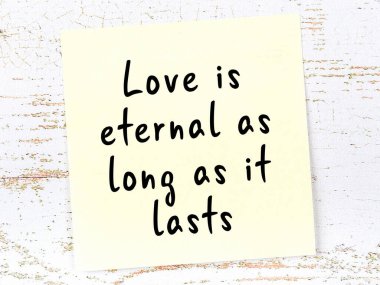 Love is
eternal as
long as it
lasts